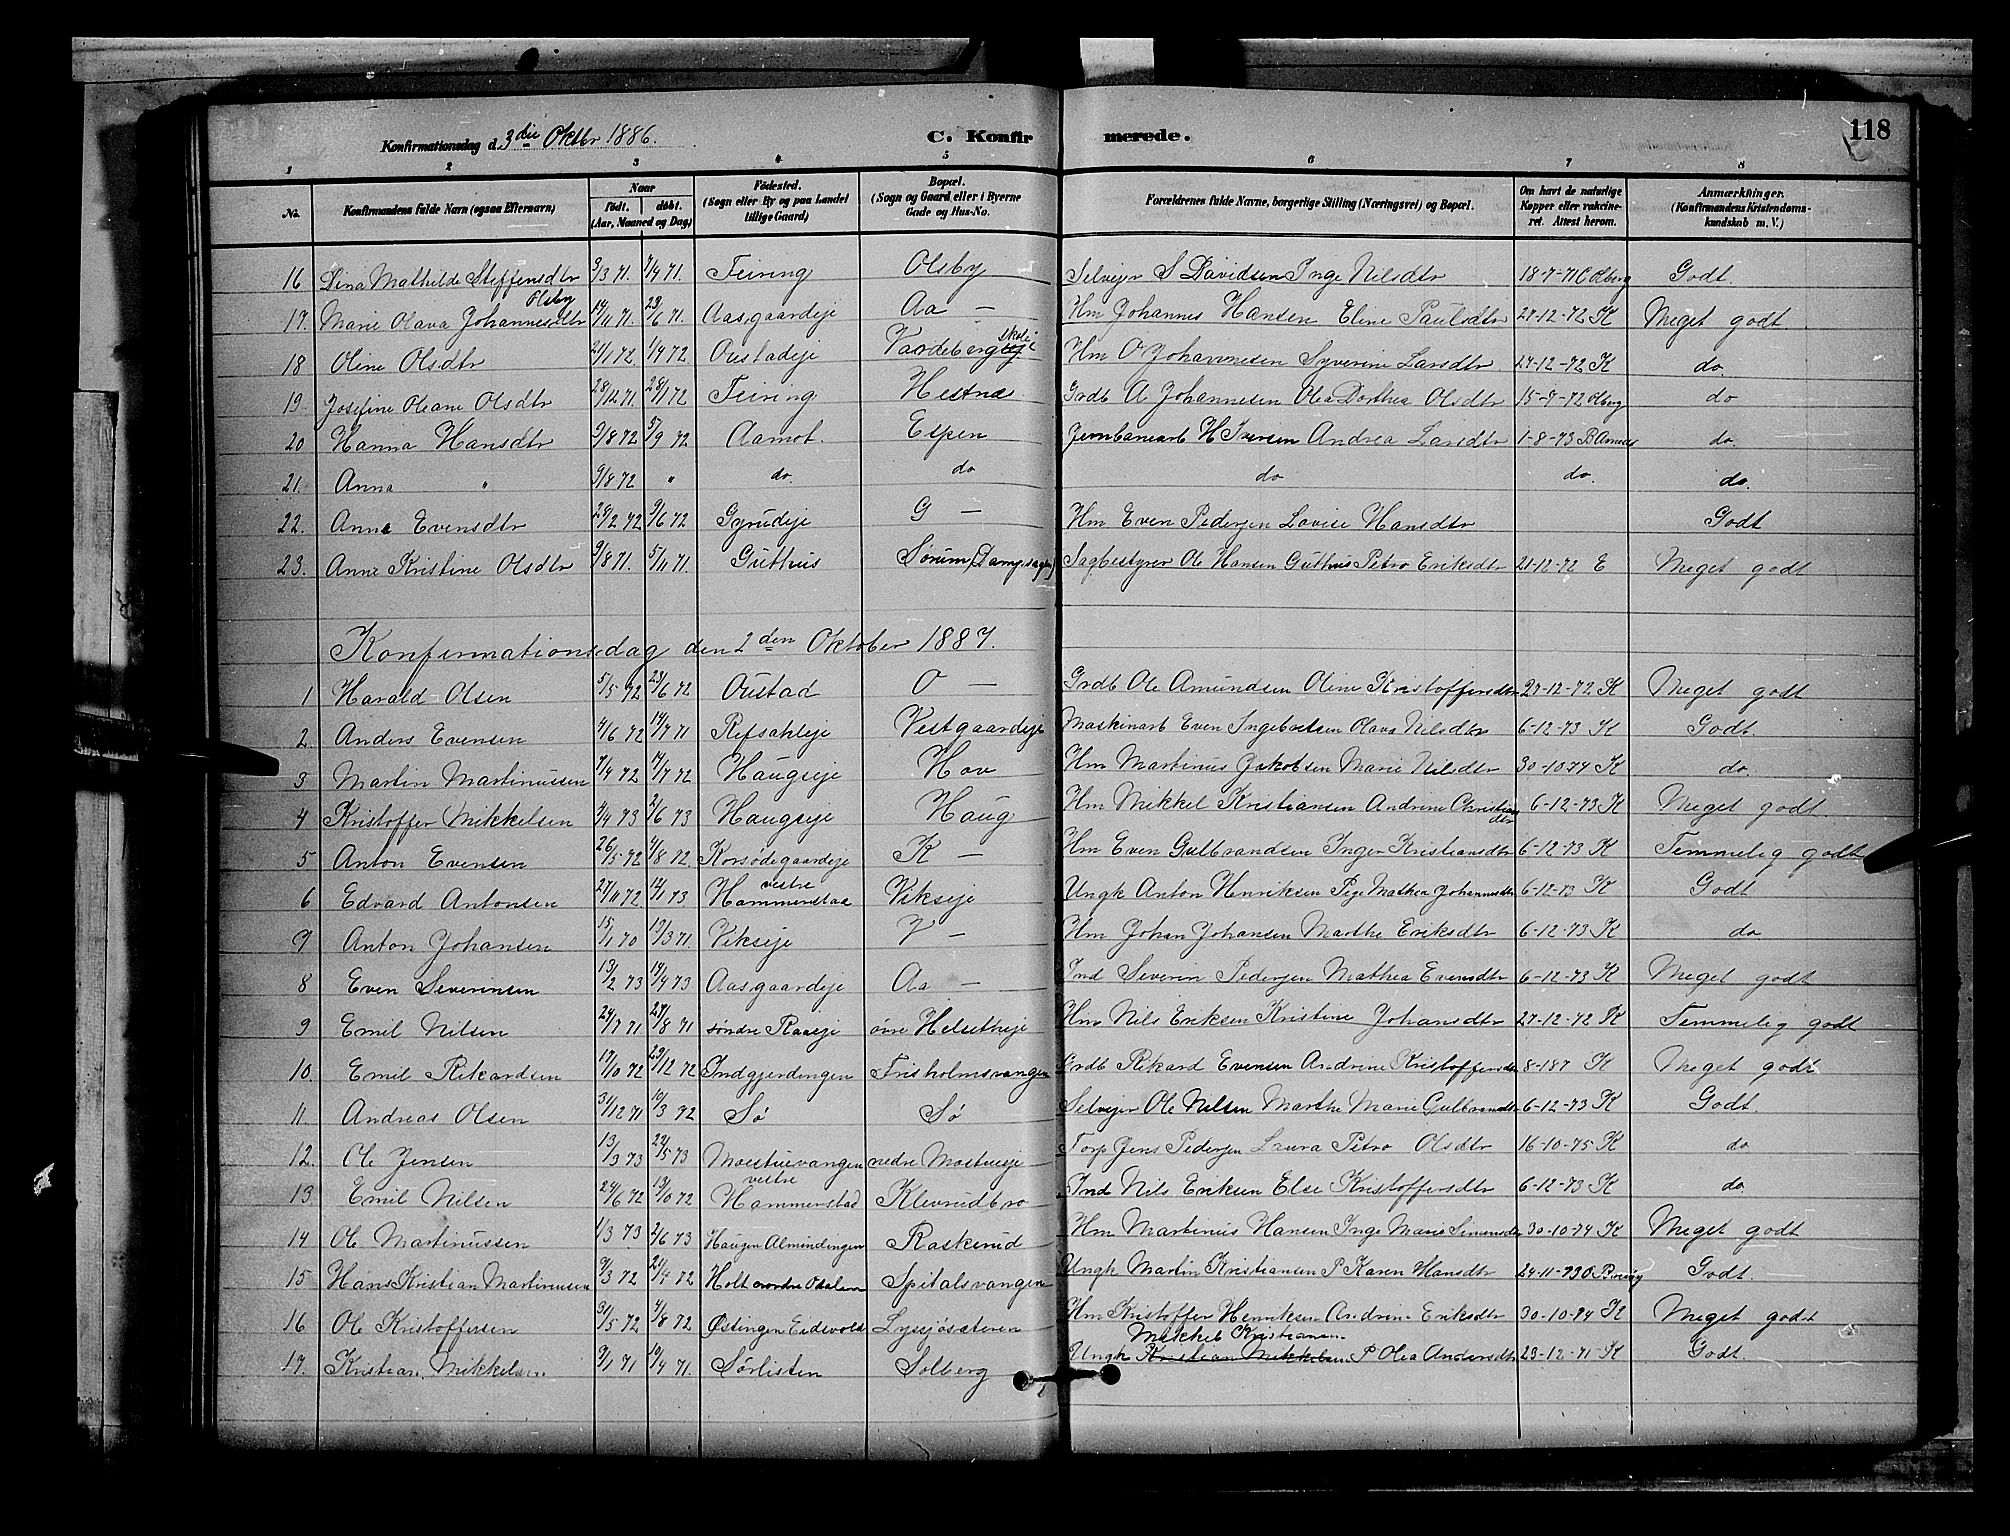 Konfirmationsdag d. 3die Oktbr 1886. C. Konfirmerede. 118
1 2 3 4 5 6 7 8
No. Konfirmandens fulde Navn (ogsaa Efternavn). Naar født. døbt. (Aar, Maaned og Dag) Fødested. (Sogn eller By og paa Landet tillige Gaard) Bopæl. (Sogn og Gaard eller i Byerne Gade og Hus-No. Forældrenes fulde Navne, borgerlige Stilling (Næringsvei) og Bopæl. Om havt de naturlige Kopper eller vaccineret. Attest herom. Anmærkninger. (Konfirmandens Kristendomskundskab m. V.)
16 Lina Mathilde Steffensdtr 9/3 71. 7/4 71. Feiring Olsby Selvejer S Davidsen Inge Nilsdtr 18-7-71 C Olberg Godt.
17. Marie Olava Johannesdtr Olsby 14/11 71. 23/6 71. Aasgaardeje Aa — Hm Johannes Hansen Eline Paulsdtr 27-12-72 K Meget godt
18 Oline Olsdtr 21/1 72 1/4 72 Oustadeje Hm O Johannesen Syverine Larsdtr 27-12-72 K do
19. Josefine Oleane Olsdtr 28/12 71. 28/1 72 Feiring Hestnæs Grdb A Johannesen Olea Dorthea Olsdtr 15-7-72 Olberg do
20 Hanna Hansdtr 9/8 72 5/9 72 Aamot. Espen Jernbanearb H Iversen Andrea Larsdtr 1-8-73 do.
21. Anna " 9/8 72 " do. do do do. do.
22. Anne Evensdtr 29/2 72 9/6 72 Gyrudeje G — Hm Even Pedersen Lovise Hansdtr Godt
23. Anne Kristine Olsdtr 9/8 71. 5/11 71. Guthus Sørum (Dampsagen) Sagbestyrer Ole Hansen Guthus Petra Eriksdtr 21-12-72 E Meget godt
Konfirmationsdag den 2den Oktober 1887.
1 Harald Olsen 5/5 72 23/6 72 Oustad O — Grdb Ole Amundsen Oline Kristoffersdtr 27-12-72 K Meget godt
2. Anders Evensen 4/6 72 14/7 71 Refsahleje Vestgaardeje Maskinarb Even Ingebretsen Olava Nilsdtr 6-12-73 K Godt.
3 Martin Martinussen 7/4 72 14/7 72 Haugseje Hov Hm Martinus Jakobsen Marie Nilsdtr 30-10-74 K do.
4 Kristoffer Mikkelsen 4/4 73 2/6 73 Haugseje Haug Hm Mikkel Kristiansen Andrine Christiansdtr 6-12-73 K Meget godt.
5 Anton Evensen 26/5 72 4/8 72. Korsødegaardeje K — Hm Even Gulbrandsen Inger Kristiansdtr 6-12-73 K Temmelig godt
6 Edvard Antonsen 27/11 72. 12/1 73 vestre Hammerstad Vikseje Ungk Anton Henriksen Pige Mathea Johannesdtr 6-12-73 K Godt
7 Anton Johansen 15/1 70 19/3 71. Vikseje V — Hm Johan Johansen Marthe Eriksdtr 6-12-73 K do
8 Even Severinsen 13/2 73 14/4 73 Aasgaardeje Aa — Ind Severin Pedersen Mathea Evensdtr 6-12-73 K Meget godt
9 Emil Nilsen 24/7 71 27/8 71 søndre Raaseje øvre Helsetheje Hm Nils Eriksen Kristine Johansdtr 27-12-72 K Temmelig godt
10. Emil Rikardsen 17/10 72 29/12 72 Indgjerdingen Frisholmsvangen Grdb Rikard Evensen Andrine Kristoffersdtr 8-187 K Meget godt
11. Andreas Olsen 31/12 71 10/3 72 Sø Sø Selvejer Ole Nilsen Marthe Marie Gulbrandsdtr 6-12-73 K Godt.
12. Ole Jensen 13/3 73 22/5 73 Mostuevangen nedre Mostueeje Torp Jens Pedersen Laura Petra Olsdtr 16-10-75 K do
13. Emil Nilsen 24/6 72 13/10 72 vestre Hammerstad Klevrudbro Ind Nils Eriksen Else Kristoffersdtr 6-12-73 K do.
14 Ole Martinussen 1/3 73 2/6 73 Haugen Almindingen Raskerud Hm Martinus Hansen Inge Marie Simensdtr 30-10-74 K Meget godt
15 Hans Kristian Martinusen 9/3 72 21/4 72 Holt nordre Odalen Spitalsvangen Ungk Martin Kristiansen P Karen Hansdtr 24-11-73 Godt.
16 Ole Kristoffersen 31/5 72 4/8 72 Østingen Eidsvold Lysjøsæteren Hm Kristoffer Henriksen Andrine Eriksdtr 30-10-74 K Meget godt
17. Kristian Mikkelsen 9/1 71 10/4 71. Sørlisten Solberg Ungk Kristian Mikkelsen Mikkel Kristiansen P Olea Andersdtr 23-12-71 K Godt.